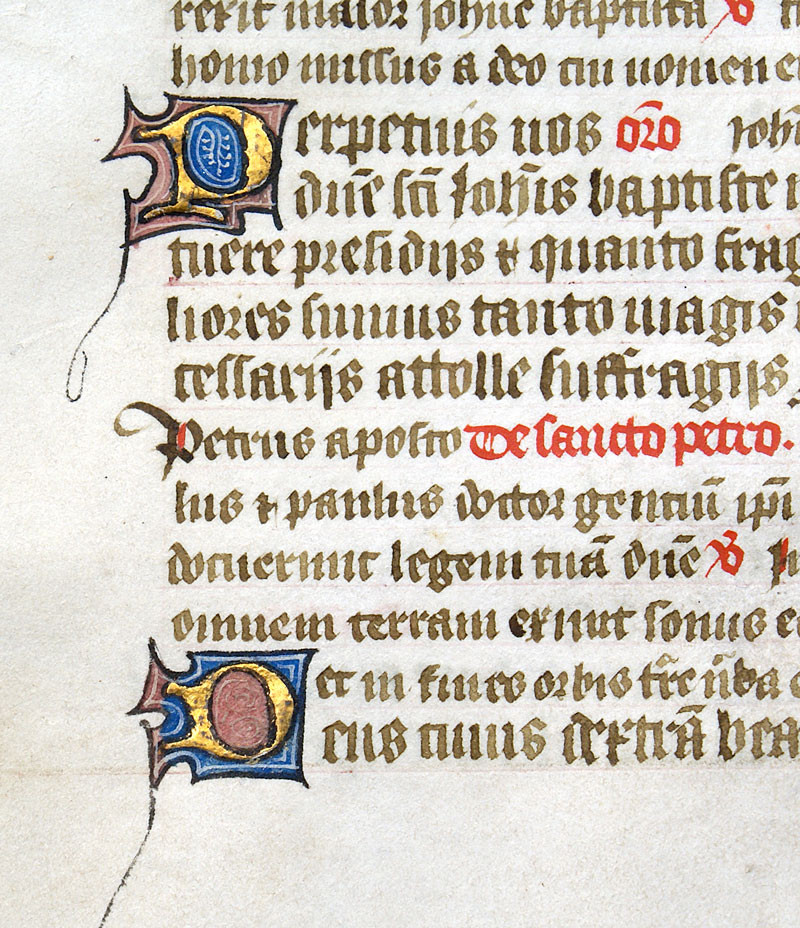 rexit maior Johãne baptista ℣
homo missus a deo cui nomen e
Perpetuis nos oro Joh
dñe scī Johīs baptiste
tuere presidijs ⁊ quanto frag
liores sumus tanto magis
cessarijs attolle suffragijs
Petrus aposto De sancto petro.
lus ⁊ paulus doctor genciū ipī
docuerunt legem tuā dñe ℣ In
omnem terram exiuit sonus e
et in fines orbis
Deus cuius dextrā bea